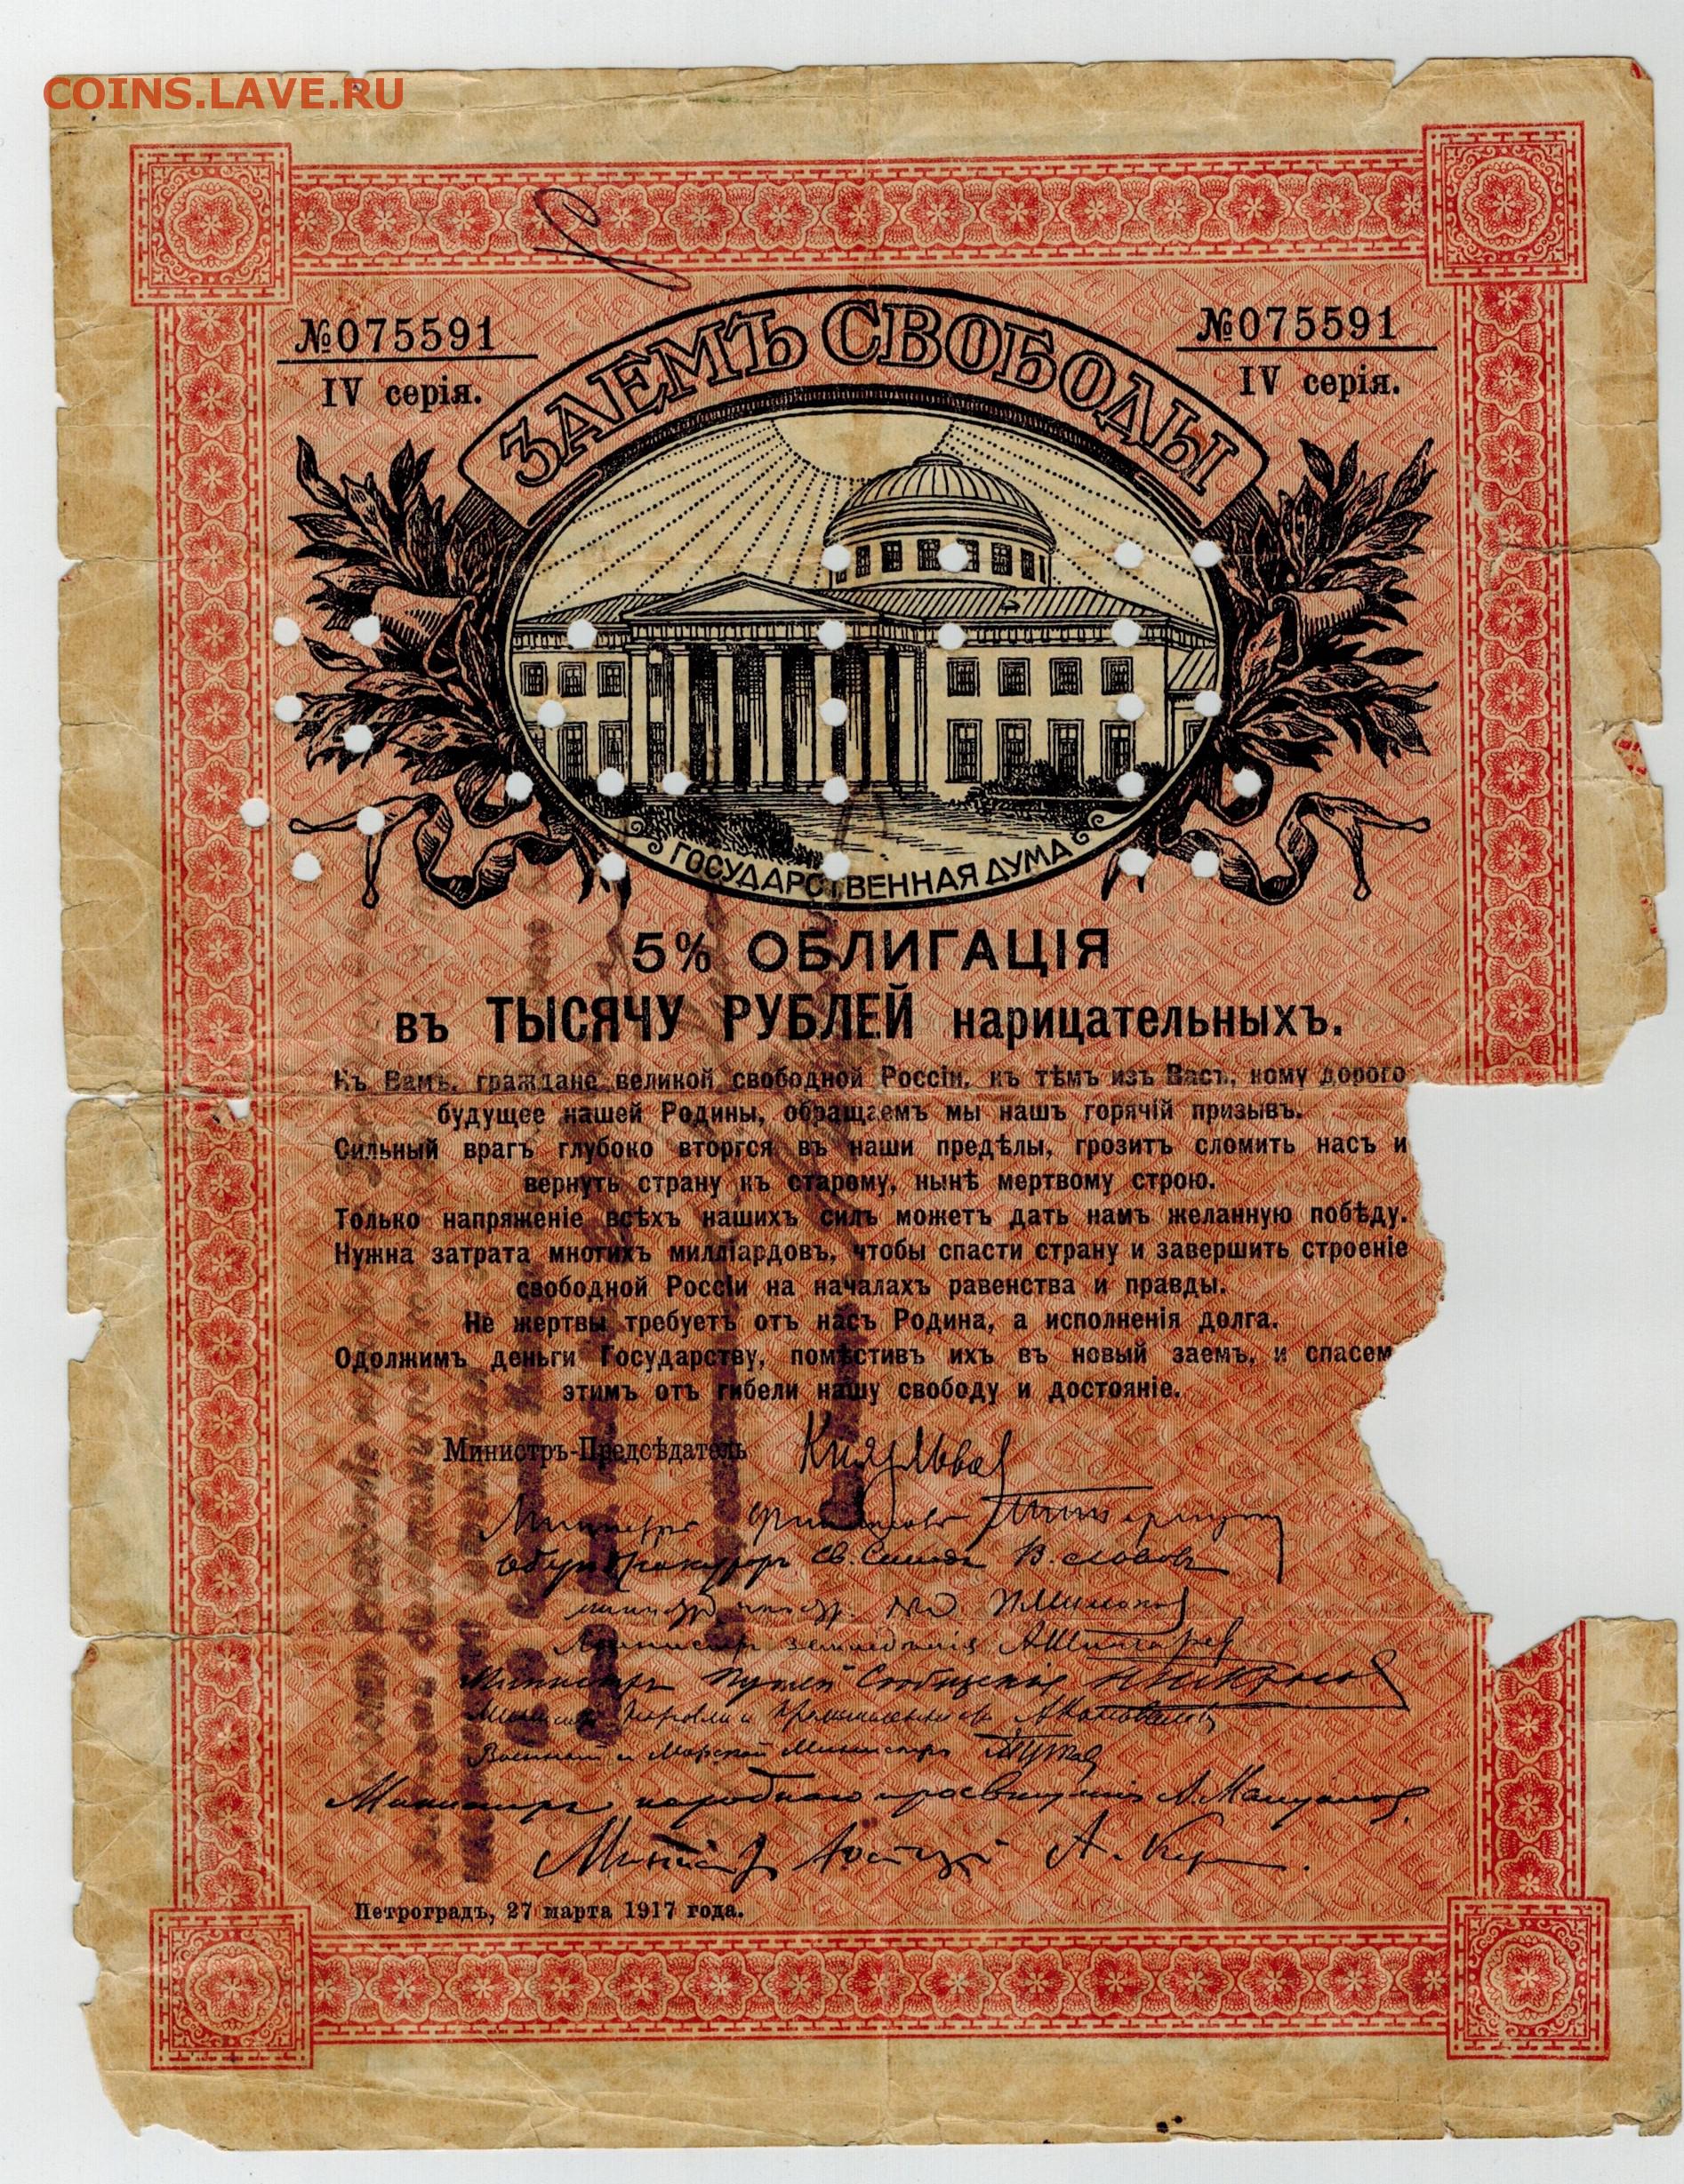 COINS.LAVE.RU
№075591
IV серія.
№075591
IV серія.
ЗАЕМЪ СВОБОДЫ
ГОСУДАРСТВЕННАЯ ДУМА
5% ОБЛИГАЦІЯ
въ ТЫСЯЧУ РУБЛЕЙ нарицательныхъ.
Къ Вамъ, граждане великой свободной Россіи, къ тѣмъ изъ Васъ, кому дорого
будущее нашей Родины, обращаемъ мы нашъ горячій призывъ.
Сильный врагъ глубоко вторгся въ наши предѣлы, грозитъ сломить насъ и
вернуть страну къ старому, нынѣ мертвому строю.
Только напряженіе всѣхъ нашихъ силъ можетъ дать намъ желанную побѣду.
Нужна затрата многихъ милліардовъ, чтобы спасти страну и завершить строеніе
свободной Россіи на началахъ равенства и правды.
Не жертвы требуетъ отъ насъ Родина, а исполненія долга.
Одолжимъ деньги Государству, помѣстивъ ихъ въ новый заемъ, и спасем
этимъ отъ гибели нашу свободу и достояніе.
Министръ-Предсѣдатель Князь Львов
Министръ Финансовъ
Оберъ Прокуроръ Св. Синода В. Львовъ
Министръ земледѣлія А Шингарев
Министръ Путей Сообщенія
Министръ Торговли и Промышленности А Коновалов
Военный и Морской Министръ
Министръ народнаго просвѣщенія А. Мануйлов
Министр Юстиціи А. Кер
Петроградъ, 27 марта 1917 года.